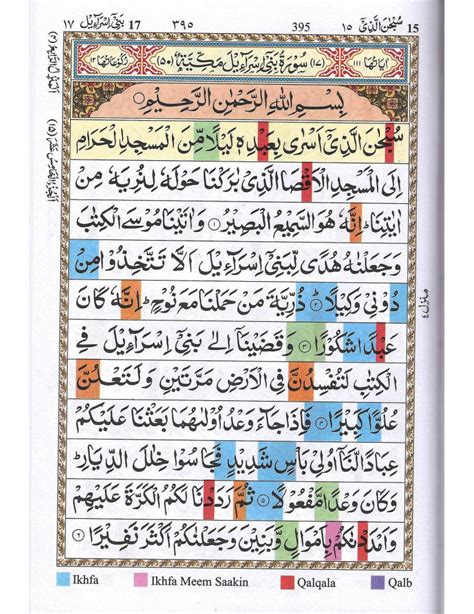 15 سُبْحٰنَ الَّذِیْۤ ۱۵ 395 ۳۹۵ 17 بَنِیْۤ اِسْرَآءِیْل ۱۷
اٰیَاتُهَا ۱۱۱ (۱۷) سُوْرَةُ بَنِیْۤ اِسْرَآءِیْلَ مَكِّیَّةٌ (۵۰) رُكُوْعَاتُهَا ۱۲
بِسْمِ اللّٰهِ الرَّحْمٰنِ الرَّحِیْمِ
سُبْحٰنَ الَّذِیْۤ اَسْرٰی بِعَبْدِهٖ لَیْلًا مِّنَ الْمَسْجِدِ الْحَرَامِ
اِلَی الْمَسْجِدِ الْاَقْصَا الَّذِیْ بٰرَكْنَا حَوْلَهٗ لِنُرِیَهٗ مِنْ
اٰیٰتِنَا ؕ اِنَّهٗ هُوَ السَّمِیْعُ الْبَصِیْرُ ۝۱ وَاٰتَیْنَا مُوْسَی الْكِتٰبَ
وَجَعَلْنٰهُ هُدًی لِّبَنِیْۤ اِسْرَآءِیْلَ اَلَّا تَتَّخِذُوْا مِنْ
دُوْنِیْ وَكِیْلًا ۝۲ ذُرِّیَّةَ مَنْ حَمَلْنَا مَعَ نُوْحٍ ؕ اِنَّهٗ كَانَ
عَبْدًا شَكُوْرًا ۝۳ وَقَضَیْنَاۤ اِلٰی بَنِیْۤ اِسْرَآءِیْلَ فِی
الْكِتٰبِ لَتُفْسِدُنَّ فِی الْاَرْضِ مَرَّتَیْنِ وَلَتَعْلُنَّ
عُلُوًّا كَبِیْرًا ۝۴ فَاِذَا جَآءَ وَعْدُ اُوْلٰىهُمَا بَعَثْنَا عَلَیْكُمْ
عِبَادًا لَّنَاۤ اُولِیْ بَاْسٍ شَدِیْدٍ فَجَاسُوْا خِلٰلَ الدِّیَارِ ؕ
وَكَانَ وَعْدًا مَّفْعُوْلًا ۝۵ ثُمَّ رَدَدْنَا لَكُمُ الْكَرَّةَ عَلَیْهِمْ
وَاَمْدَدْنٰكُمْ بِاَمْوَالٍ وَّبَنِیْنَ وَجَعَلْنٰكُمْ اَكْثَرَ نَفِیْرًا ۝۶
منزل ۴
Ikhfa Ikhfa Meem Saakin Qalqala Qalb